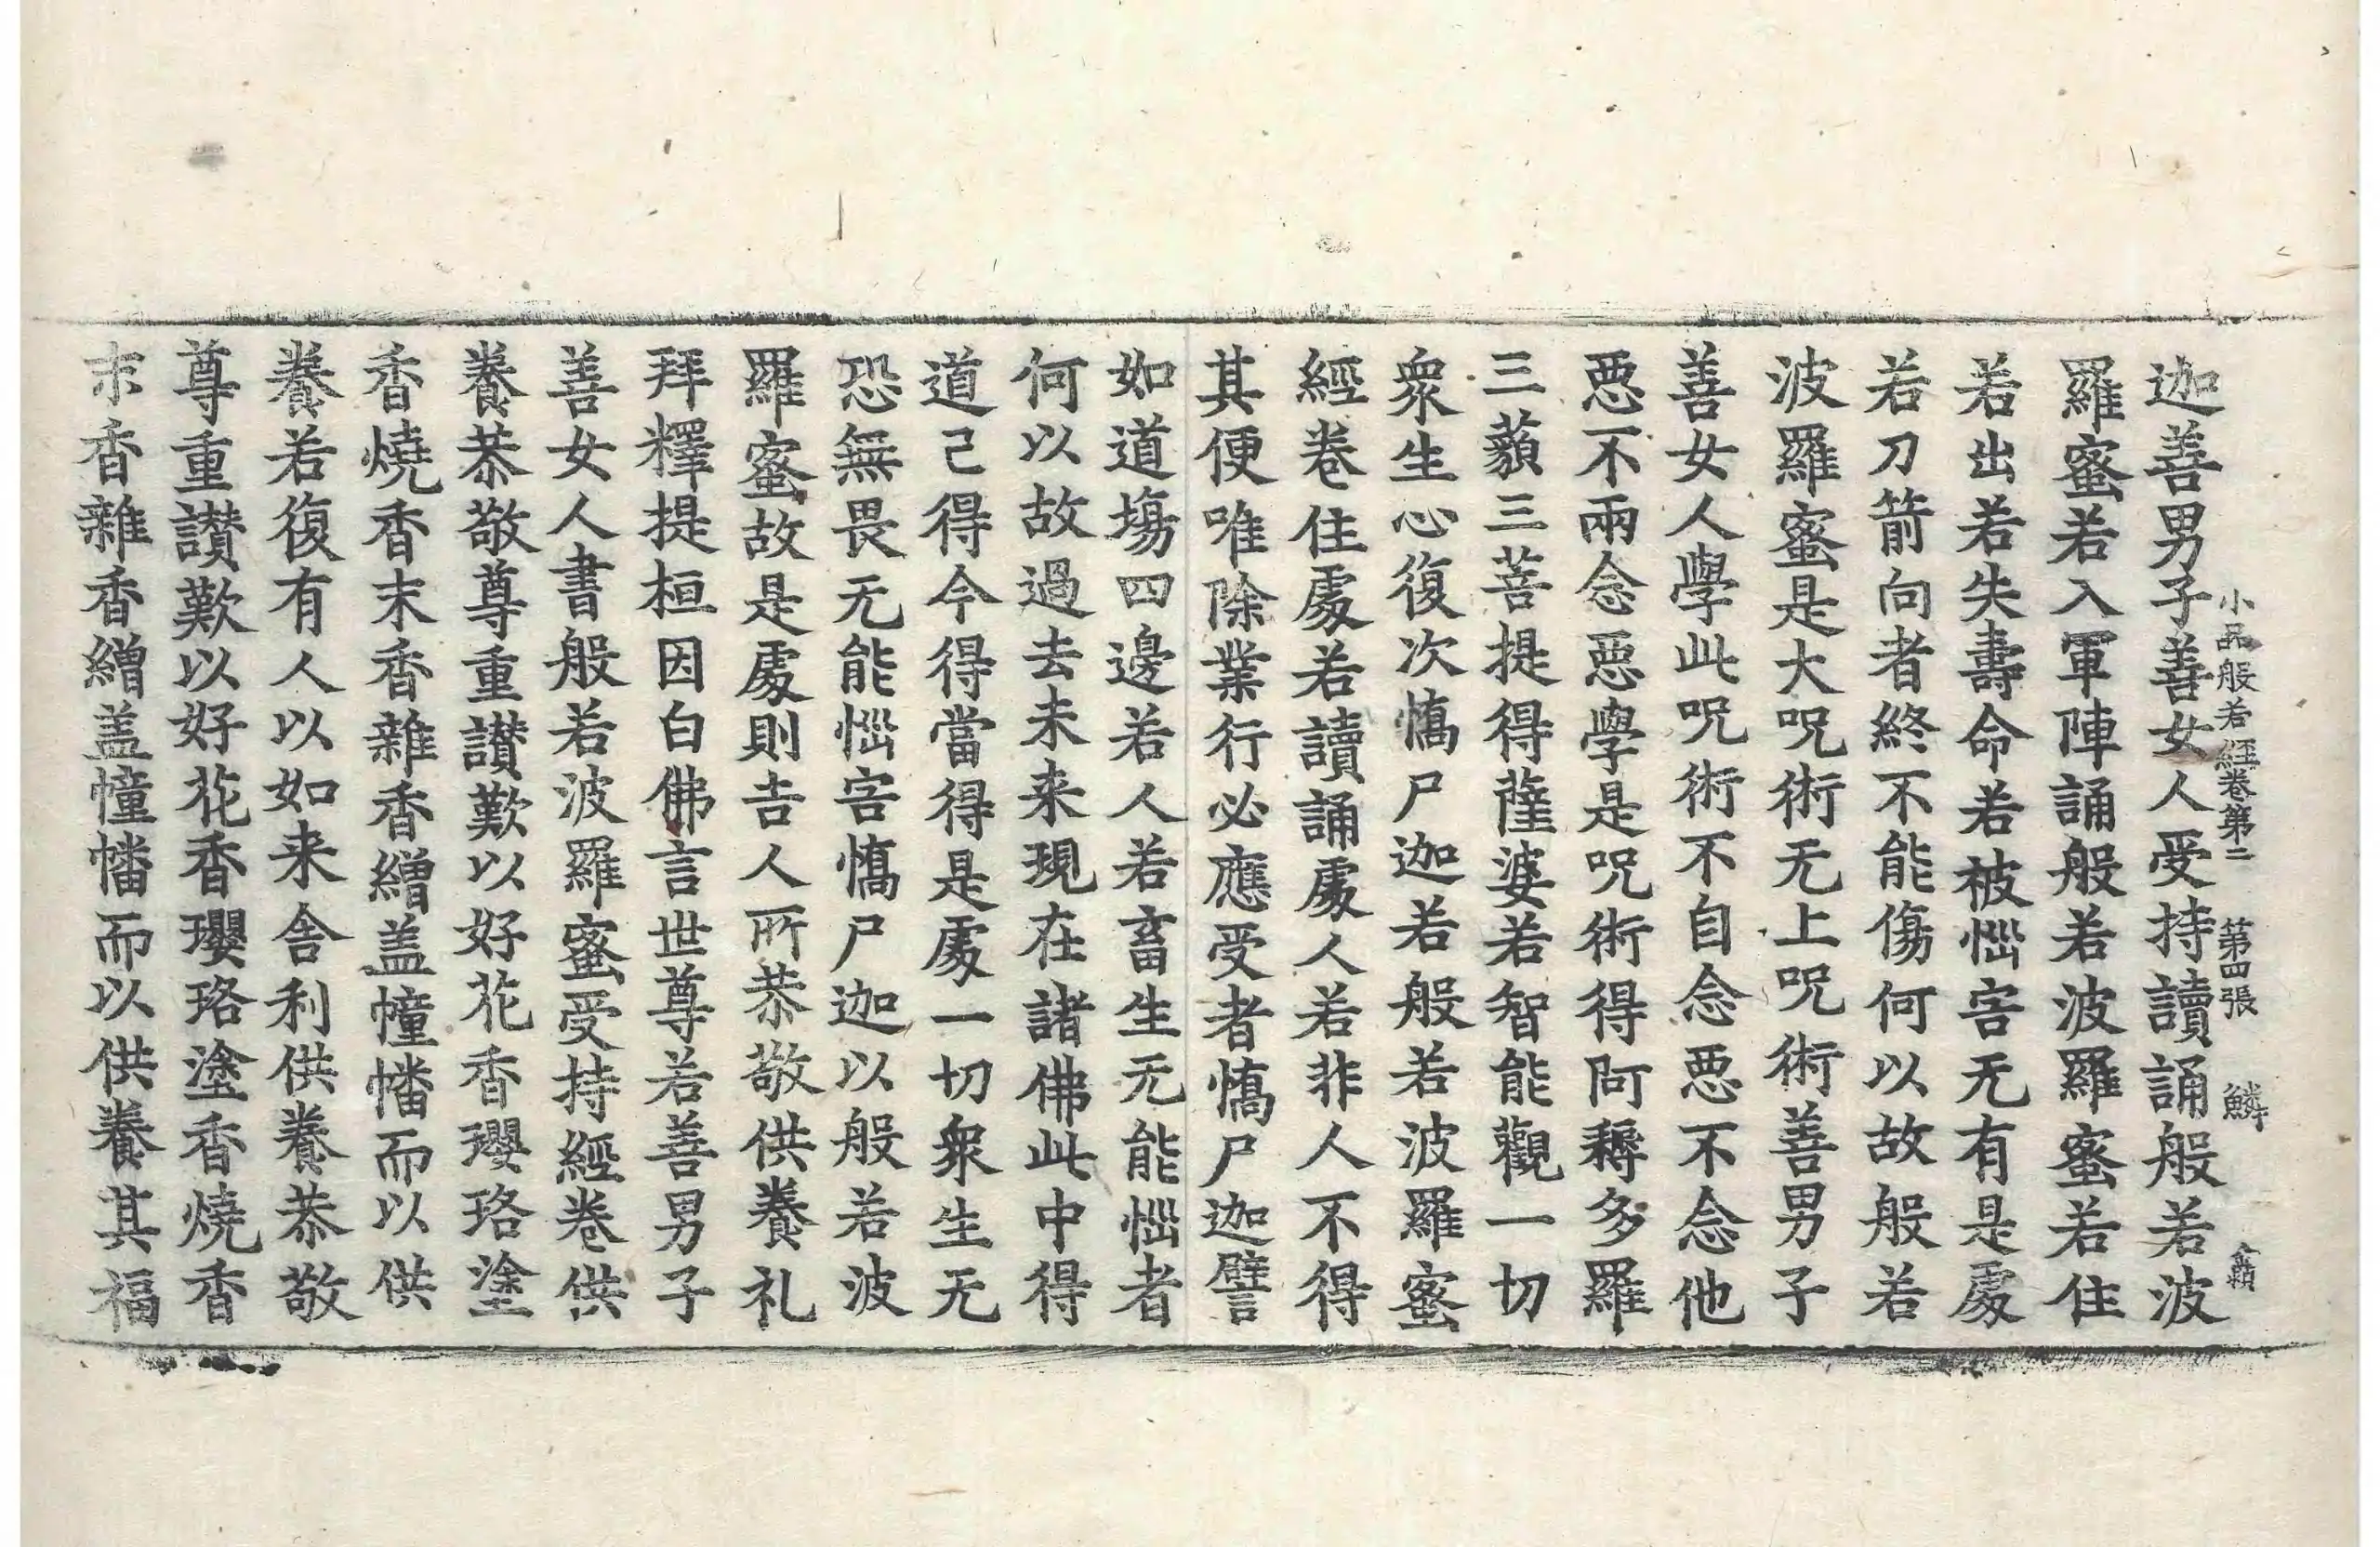 小品般若經卷第二　第四張　鱗
迦善男子善女人受持讀誦般若波
羅蜜若入軍陣誦般若波羅蜜若住
若出若失壽命若被惱害无有是處
若刀箭向者終不能傷何以故般若
波羅蜜是大呪術无上呪術善男子
善女人學此呪術不自念惡不念他
惡不兩念惡學是呪術得阿耨多羅
三藐三菩提得薩婆若智能觀一切
衆生心復次憍尸迦若般若波羅蜜
經卷住處若讀誦處人若非人不得
其便唯除業行必應受者憍尸迦譬
如道場四邊若人若畜生无能惱者
何以故過去未来現在諸佛此中得
道己得今得當得是處一切衆生无
恐無畏无能惱害憍尸迦以般若波
羅蜜故是處則吉人所恭敬供養礼
拜釋提桓因白佛言世尊若善男子
善女人書般若波羅蜜受持經卷供
養恭敬尊重讃歎以好花香瓔珞塗
香燒香末香雜香繒盖幢幡而以供
養若復有人以如来舍利供養恭敬
尊重讃歎以好花香瓔珞塗香燒香
末香雜香繒盖幢幡而以供養其福